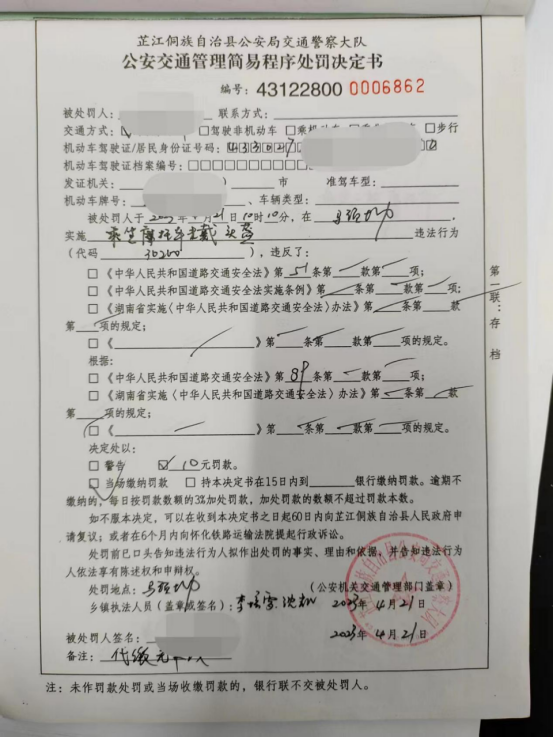 芷江侗族自治县公安局交通警察大队
公安交通管理简易程序处罚决定书
编号: 43122800 0006862
被处罚人: 联系方式:
交通方式: □驾驶非机动车 □乘机动车 □步行
机动车驾驶证/居民身份证号码: 433027
机动车驾驶证档案编号: □□□□□□□□□□□□
发证机关: 市 准驾车型:
机动车牌号: 、车辆类型:
被处罚人于 年4月21日10时10分,在
实施 乘坐摩托车未戴头盔 违法行为
(代码 30200 ),违反了:
□《中华人民共和国道路交通安全法》第51条第 款第 项;
□《中华人民共和国道路交通安全法实施条例》第 条第 款第 项;
□《湖南省实施〈中华人民共和国道路交通安全法〉办法》第 条第 款
第 项的规定;
□《 》第 条第 款第 项的规定。
根据:
□《中华人民共和国道路交通安全法》第89条第 款第 项;
□《湖南省实施〈中华人民共和国道路交通安全法〉办法》第 条第 款
第 项的规定;
□《 》第 条第 款第 项的规定。
决定处以:
□ 警告 ☑ 10元罚款。
□ 当场缴纳罚款 □ 持本决定书在15日内到 银行缴纳罚款。逾期不
缴纳的,每日按罚款数额的3%加处罚款,加处罚款的数额不超过罚款本数。
如不服本决定,可以在收到本决定书之日起60日内向芷江侗族自治县人民政府申
请复议;或者在6个月内向怀化铁路运输法院提起行政诉讼。
处罚前已口头告知违法行为人拟作出处罚的事实、理由和依据,并告知违法行为
人依法享有陈述权和申辩权。
处罚地点: (公安机关交通管理部门盖章)
乡镇执法人员(盖章或签名): 2023年4月21日
2023年4月21日
被处罚人签名:
备注: 代缴
注:未作罚款处罚或当场收缴罚款的,银行联不交被处罚人。
第一联:存档